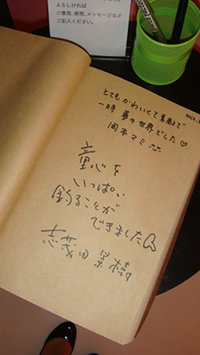 よろしければ
ご意見、感想、メッセージなど
ご記入ください。
とてもかわいくて素敵で
一時 夢の世界でした♡
岡本マミ
童心を
いっぱい
釣ることが
できました
志茂田景樹